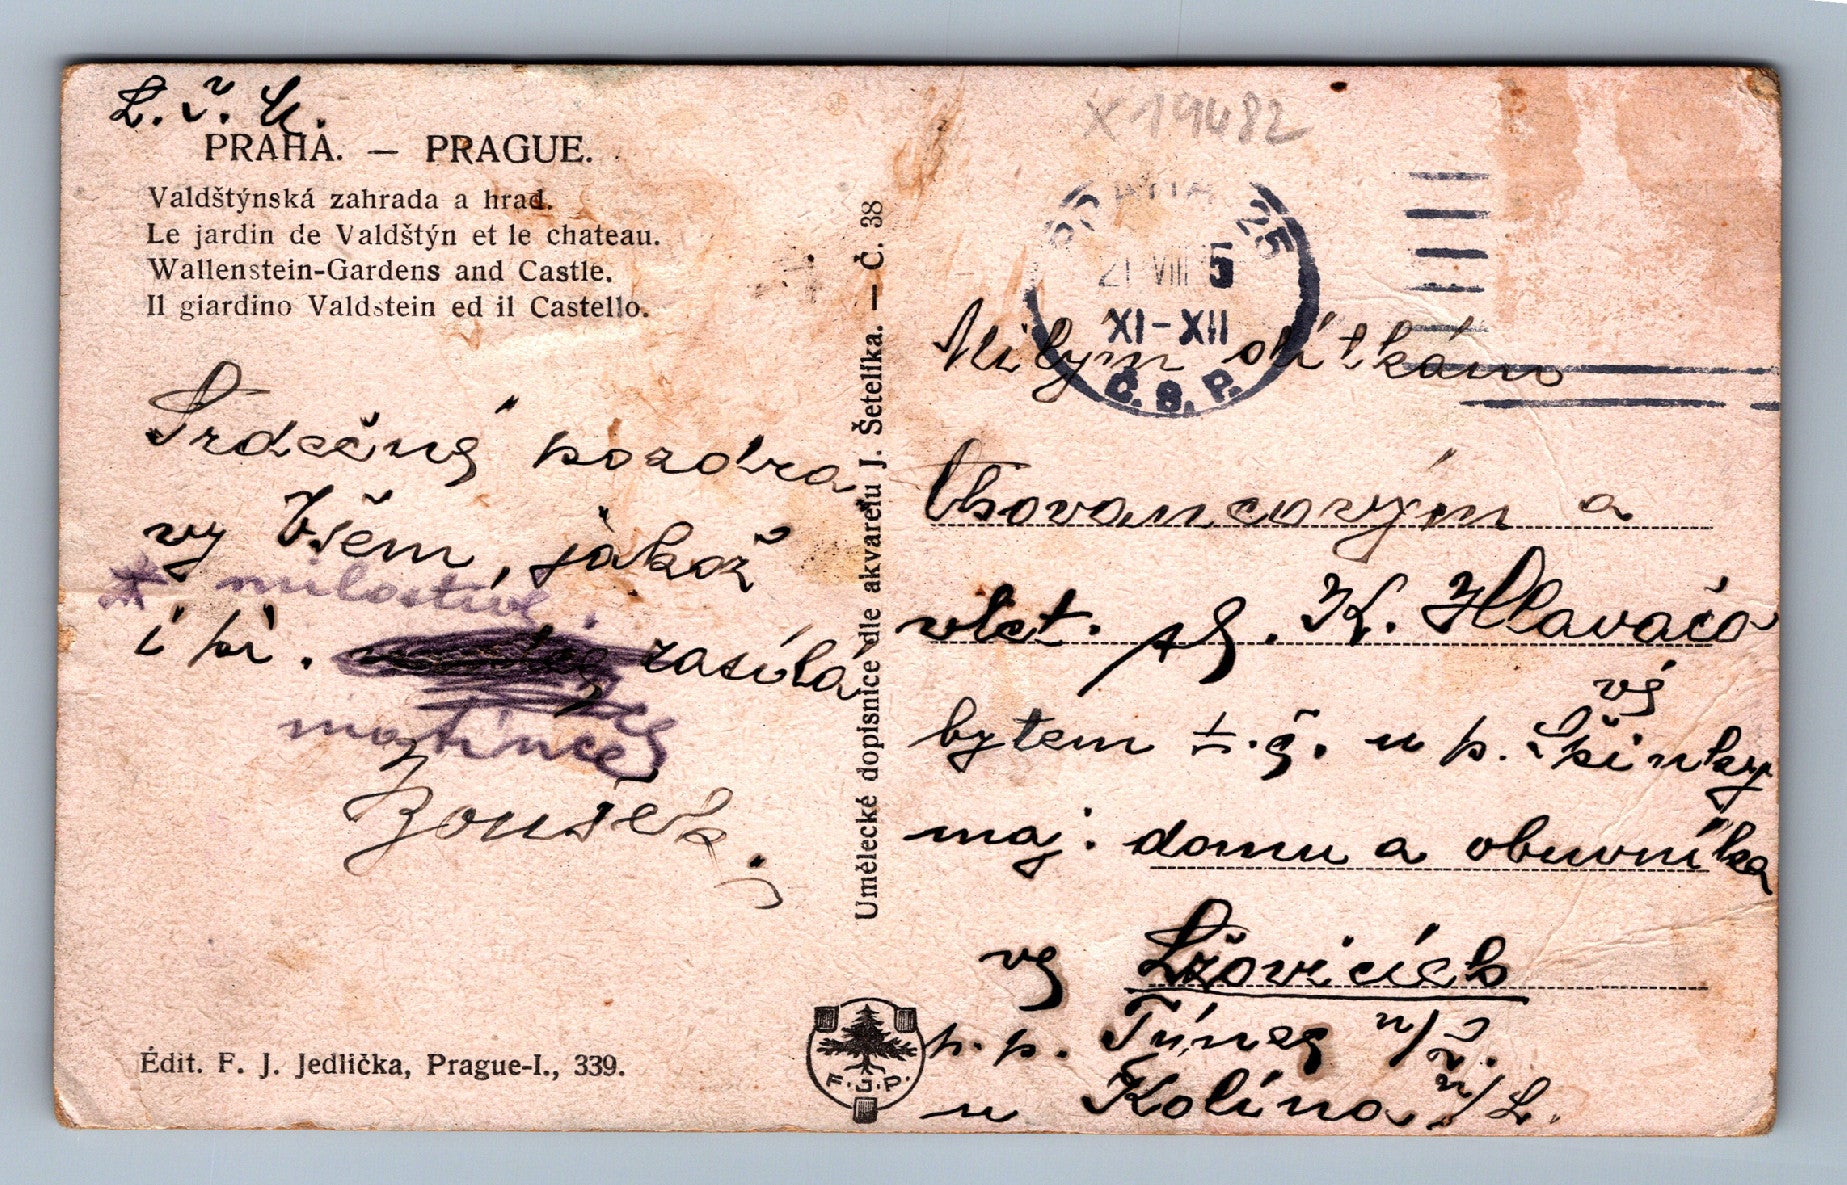 L. č. K.
PRAHA. — PRAGUE.
Valdštýnská zahrada a hrad.
Le jardin de Valdštýn et le chateau.
Wallenstein-Gardens and Castle.
Il giardino Valdstein ed il Castello.
Srdečné pozdra
vy Všem, jakož
* milostivé
i pí. zasílá
matince
Édit. F. J. Jedlička, Prague-I., 339.
Umělecké dopisnice dle akvarelu J. Šetelíka. — Č. 38
F. J. P.
X 19482
PRAHA 25
21 VIII 5
XI-XII
Č. S. P.
Milým dítkám
Chovancovým a
vlct. sl. K. Hlaváčo
vé
bytem t. č. u p. Špinky
maj. domu a obuvníka
ve Lžovicích
p. p. Týnec n/L.
u Kolína n/L.